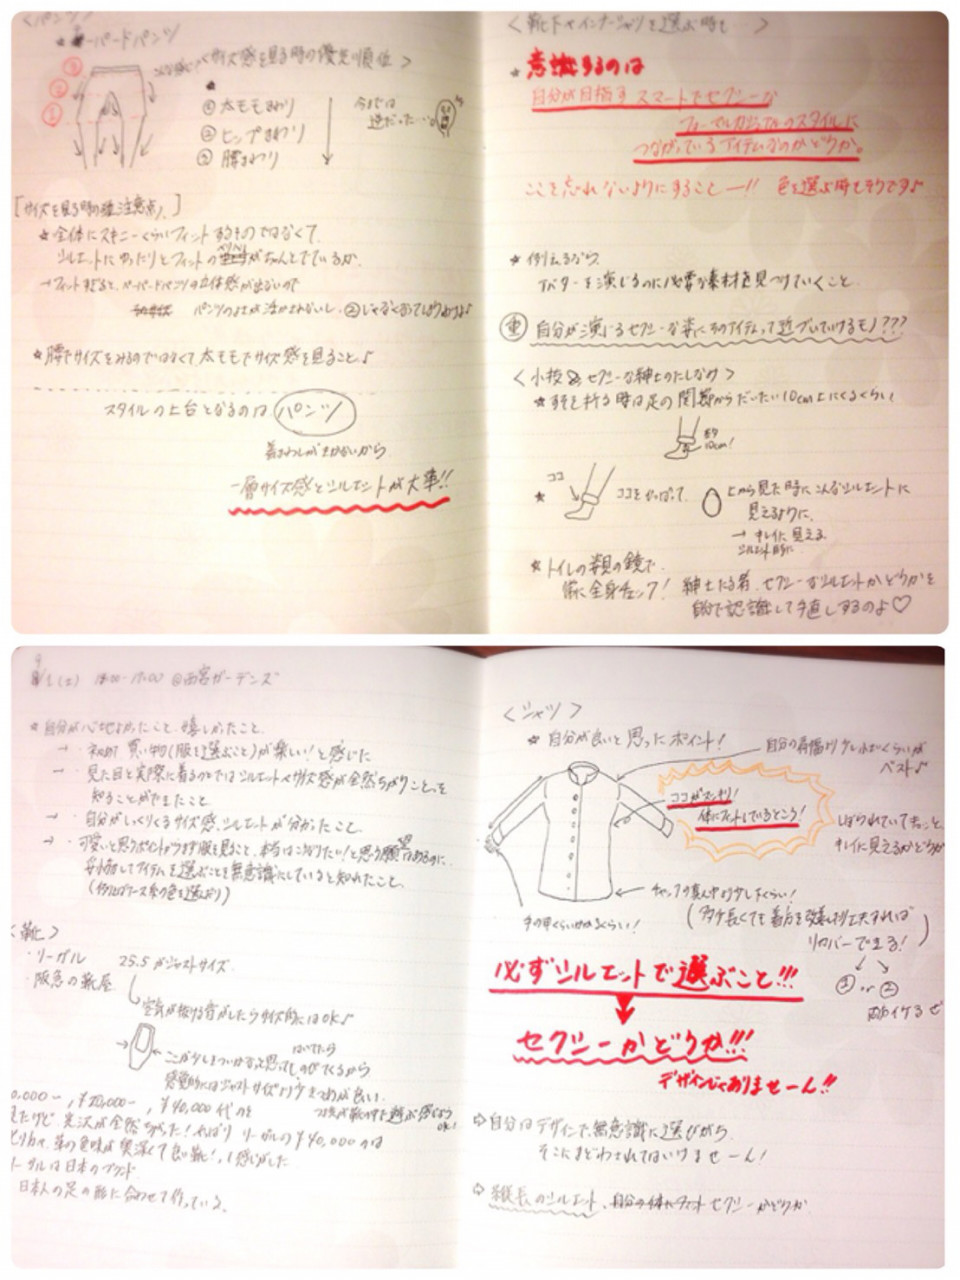 ＜パンツ＞
★ーパードパンツ
サイズ感を見る時の優先順位＞
③
②
①
★
① 太ももまわり
② ヒップまわり
③ 腰まわり
今までは
逆だった…。
[サイズを見る時の注意点♪]
★全体にスキニーくらいフィットするものではなくて、
シルエットにゆったりとフィットの
がちゃんとでているか。
→フィットすぎると、ペーパードパンツの立体感が出ないので
パンツのよさが活かされないし、
★腰でサイズをみるのではなくて、太ももでサイズ感を見ること♪
スタイルの土台となるのは パンツ
着まわしがきかないから
一層サイズ感とシルエットが大事!!
＜靴下やインナーシャツを選ぶ時も…＞
★意識するのは
自分が目指す スマートでセクシーな
フォーマルカジュアルのスタイルに
つながっているアイテムなのかどうか。
ここを忘れないようにすることー!! 色を選ぶ時もそうです♪
★例えるなら、
アバターを演じるのに必要な素材を見つけていくこと。
重 自分が演じるセクシーな姿にそのアイテムって近づいていけるモノ???
＜小技 セクシーな紳士のたしなみ＞
★すそを折る時は足の関節からだいたい10cm上にくるくらい
約
10cm!
★
ココ
ココをひっぱって、
上から見た時にこんなシルエットに
見えるように。
→キレイに見える
シルエット的に
★トイレの類の鏡で
常に全身チェック! 紳士たる者、セクシーなシルエットかどうかを
自分で認識して手直しするのよ♡
9/1(土) 14:00-17:00 @西宮ガーデンズ
★自分が心地よかったこと、嬉しかったこと。
→・初めて買い物(服を選ぶこと)が楽しい!と感じた
→・見た目と実際に着るのとではシルエットやサイズ感が全然ちがうことを
知ることができたこと
→・自分がしっくりくるサイズ感、シルエットが分かったこと。
→・可愛いと思うポイントがつまった服を見ること、本当はこうなりたい!と思う願望はあるのに、
妥協してアイテムを選ぶことを無意識にしていると知れたこと。
＜靴＞
・リーガル 25.5がジャストサイズ
・阪急の靴屋
空気が抜ける音がしたらサイズ的にはOK♪
ここが少しきついかなと思っても
はいてたら
のびてくるから
感覚的にはジャストサイズよりややきつめが良い。
0,000-、¥20,000-、¥40,000代のを
見たけど、光沢が全然ちがった! やはり リーガルの¥40,000のは
革の色味が奥深くて良い靴!と感じた
リーガルは日本のブランド
日本人の足の形に合わせて作っている。
＜シャツ＞
★ 自分が良いと思ったポイント!
自分の肩幅より少し小さいくらいが
ベスト♪
ココがスッキリ!
体にフィットしているところ!
しぼられていてキュッと、
キレイに見えるかどうか
チャックの真ん中より少し下くらい!
手の甲くらいかかるくらい!
(多少長くても着方を改善したり工夫すれば
リカバーできる!)
① or ②
両方イケるぜ
必ずシルエットで選ぶこと!!!
セクシーかどうか!!!
デザインじゃありませーん!!
⇨自分はデザインで無意識に選びがち
そこにまどわされてはいけませーん!
⇨縦長のシルエット、自分の体にフィット セクシーかどうか